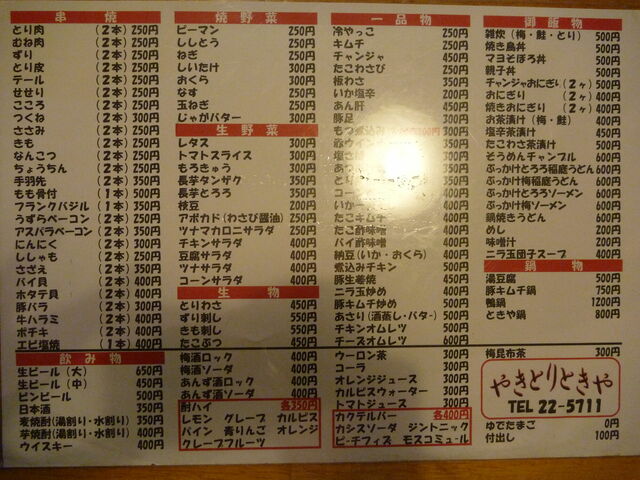 串 焼
とり肉 (2本) 250円
むね肉 (2本) 250円
ずり (2本) 250円
とり皮 (2本) 250円
テール (2本) 250円
せせり (2本) 250円
こころ (2本) 250円
つくね (2本) 300円
ささみ (2本) 250円
きも (2本) 250円
なんこつ (2本) 250円
ちょうちん (2本) 250円
手羽先 (2本) 350円
もも骨付 (1本) 500円
フランクバジル (1本) 350円
うずらベーコン (2本) 250円
アスパラベーコン (2本) 300円
にんにく (2本) 300円
ししゃも (2本) 250円
さざえ (2本) 350円
バイ貝 (2本) 400円
ホタテ貝 (2本) 400円
豚バラ (2本) 300円
牛ハラミ (2本) 400円
ポチキ (2本) 400円
エビ塩焼 (1本) 400円
焼 野 菜
ピーマン 250円
ししとう 250円
ねぎ 250円
しいたけ 300円
おくら 300円
なす 250円
玉ねぎ 250円
じゃがバター 300円
生 野 菜
レタス 300円
トマトスライス 300円
もろきゅう 300円
長芋タンザク 350円
長芋とろろ 350円
枝豆 200円
アボカド(わさび醤油) 250円
ツナマカロニサラダ 250円
チキンサラダ 400円
豆腐サラダ 400円
ツナサラダ 400円
コーンサラダ 400円
生 物
とりわさ 450円
ずり刺し 550円
きも刺し 550円
たこぶつ 450円
一 品 物
冷やっこ 250円
キムチ 250円
チャンジャ 450円
たこわさび 350円
板わさ 350円
いか塩辛 300円
あん肝 450円
豚足 400円
もつ煮込み 300円
たこキムチ 400円
たこ酢味噌 400円
バイ酢味噌 400円
納豆(いか・おくら) 400円
煮込みチキン 500円
豚生姜焼 450円
ニラ玉炒め 400円
豚キムチ炒め 500円
あさり(酒蒸し・バター) 500円
チキンオムレツ 600円
チーズオムレツ 600円
御 飯 物
雑炊 (梅・鮭・とり) 500円
焼き鳥丼 500円
マヨそぼろ丼 500円
親子丼 500円
チャンジャおにぎり (2ヶ) 500円
おにぎり (2ヶ) 400円
焼きおにぎり (2ヶ) 400円
お茶漬け (梅・鮭) 400円
塩辛茶漬け 450円
たこわさ茶漬け 500円
そうめんチャンプル 600円
ぶっかけとろろ稲庭うどん 600円
ぶっかけ梅稲庭うどん 600円
ぶっかけとろろソーメン 600円
ぶっかけ梅ソーメン 600円
鍋焼きうどん 600円
めし 200円
味噌汁 200円
ニラ玉団子スープ 400円
鍋 物
湯豆腐 500円
豚キムチ鍋 750円
鴨鍋 1200円
ときや鍋 800円
飲 み 物
生ビール (大) 650円
生ビール (中) 450円
ビンビール 500円
日本酒 350円
麦焼酎(湯割り・水割り) 350円
芋焼酎(湯割り・水割り) 400円
ウイスキー 400円
梅酒ロック 400円
梅酒ソーダ 400円
あんず酒ロック 400円
あんず酒ソーダ 400円
酎ハイ 各350円
レモン グレープ カルピス
パイン 青りんご オレンジ
グレープフルーツ
ウーロン茶 300円
コーラ 300円
オレンジジュース 300円
カルピスウォーター 300円
トマトジュース 300円
カクテルバー 各400円
カシスソーダ ジントニック
ピーチフィズ モスコミュール
梅昆布茶 300円
やきとりときや
TEL 22-5711
ゆでたまご 0円
付出し 100円